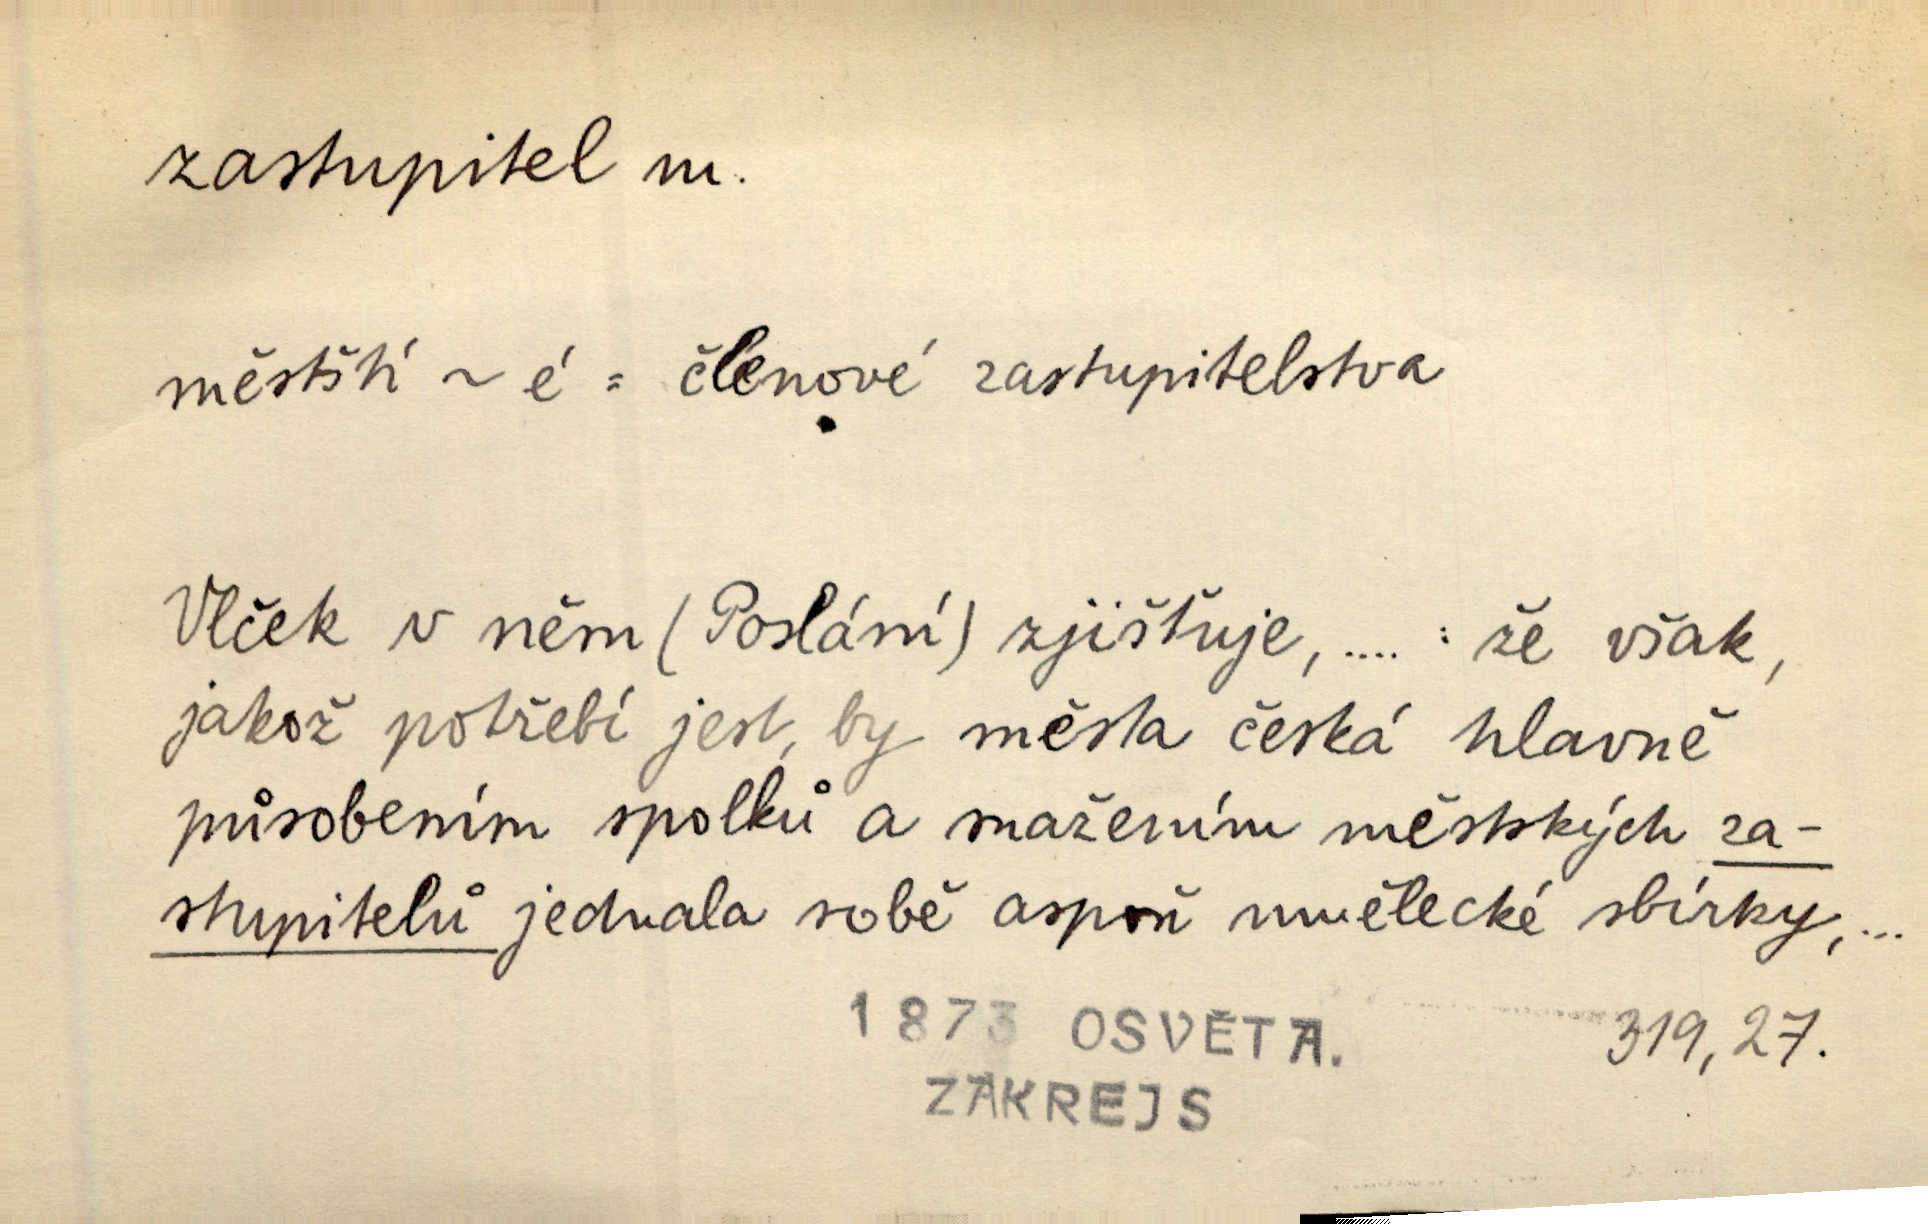 zastupitel m.
městští ~ é = členové zastupitelstva
Vlček v něm (Poslání) zjišťuje, .... : že však,
jakož potřebí jest, by města česká hlavně
působením spolků a snažením městských za-
stupitelů jednala sobě aspoň umělecké sbírky, ...
1873 OSVĚTA. 319,27.
ZÁKREJS